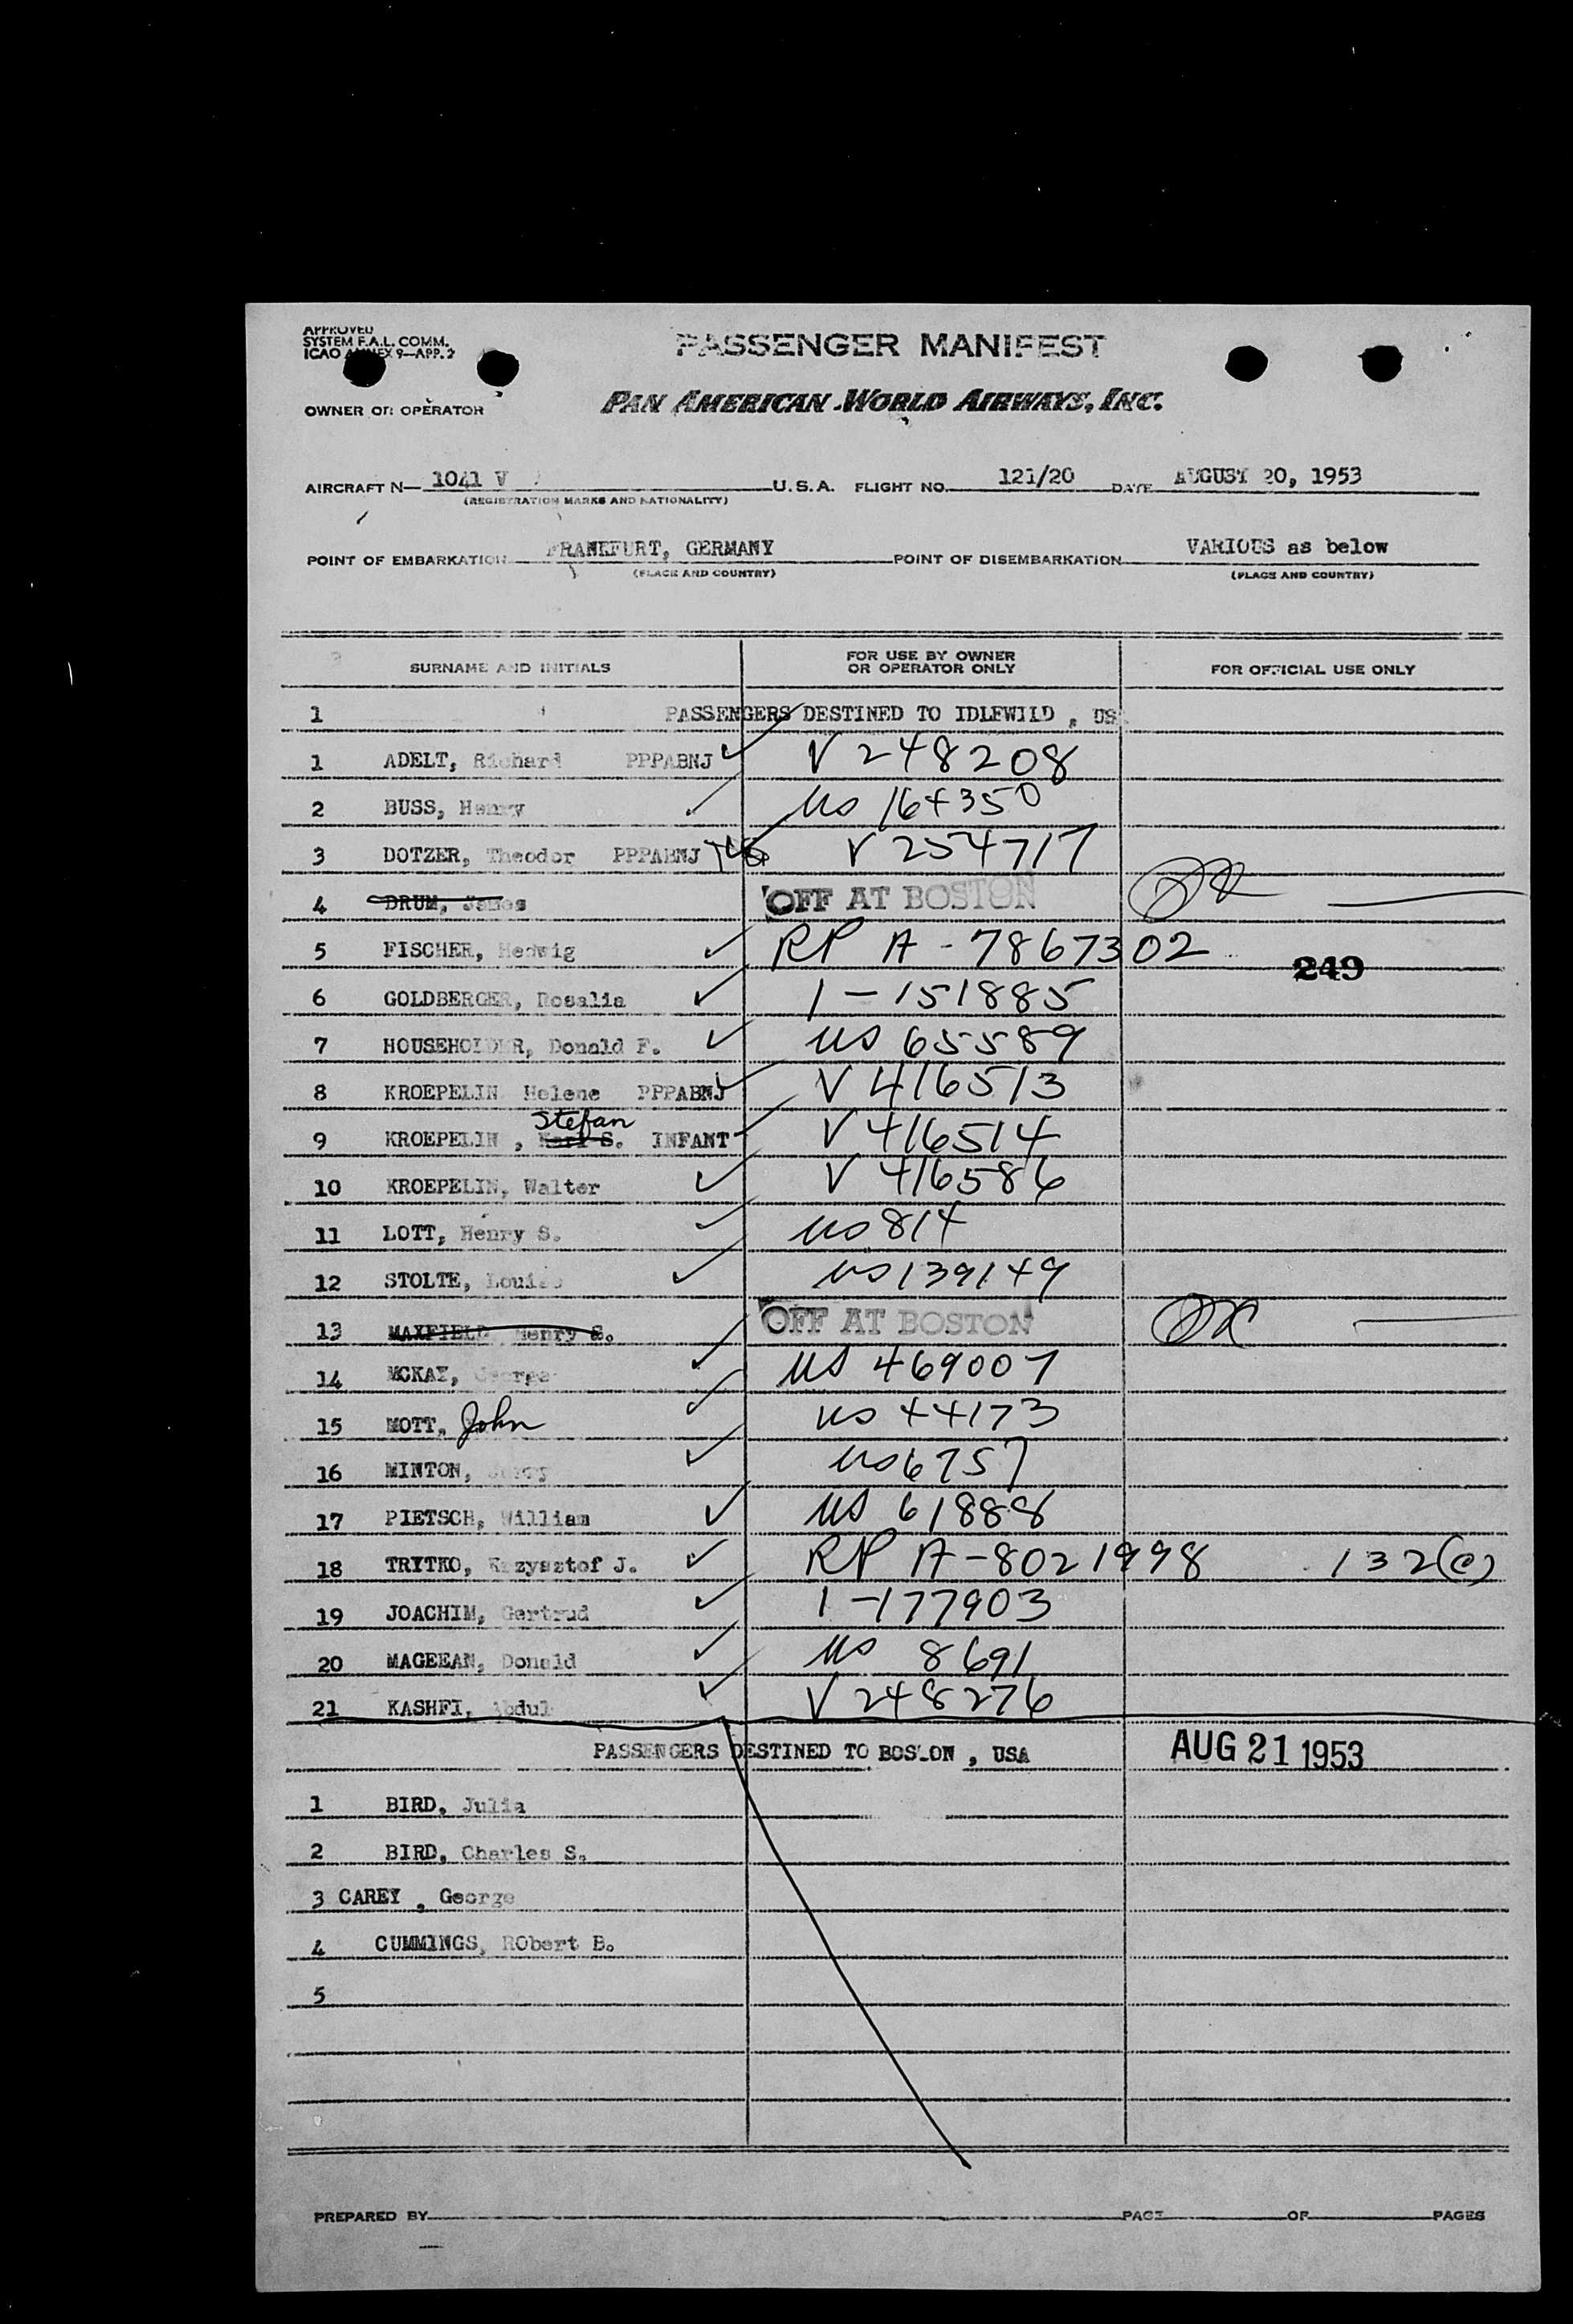 APPROVED
SYSTEM F.A.L. COMM.
ICAO ANNEX 9—APP. 2
PASSENGER MANIFEST
OWNER OR OPERATOR PAN AMERICAN WORLD AIRWAYS, INC.
AIRCRAFT N— 1041 V U.S.A. FLIGHT NO. 121/20 DATE AUGUST 20, 1953
(REGISTRATION MARKS AND NATIONALITY)
POINT OF EMBARKATION FRANKFURT, GERMANY POINT OF DISEMBARKATION VARIOUS as below
(PLACE AND COUNTRY) (PLACE AND COUNTRY)
SURNAME AND INITIALS FOR USE BY OWNER OR OPERATOR ONLY FOR OFFICIAL USE ONLY
1 PASSENGERS DESTINED TO IDLEWILD , US
1 ADELT, Richard PPPABNJ V 248208
2 BUSS, Henry US 164350
3 DOTZER, Theodor PPPABNJ V 254717
4 DRUM, James OFF AT BOSTON
5 FISCHER, Hedwig RP A-7867302
249
6 GOLDBERGER, Rosalia 1-151885
7 HOUSEHOLDER, Donald F. US 65589
8 KROEPELIN Helene PPPABNJ V 416513
9 KROEPELIN , Karl S. Stefan INFANT V 416514
10 KROEPELIN, Walter V 416586
11 LOTT, Henry S. US 814
12 STOLTE, Louise US 139149
13 MAXFIELD Henry S. OFF AT BOSTON
14 MCKAY, George US 469007
15 MOTT, John US 44173
16 MINTON, US 6757
17 PIETSCH, William US 61888
18 TRYTKO, Krzysztof J. RP A-8021998 132(e)
19 JOACHIM, Gertrud 1-177903
20 MAGEEAN, Donald US 8691
21 KASHFI, Abdul V 248276
PASSENGERS DESTINED TO BOSTON , USA AUG 21 1953
1 BIRD, Julia
2 BIRD, Charles S.
3 CAREY , George
4 CUMMINGS, RObert B.
5
PREPARED BY PAGE OF PAGES